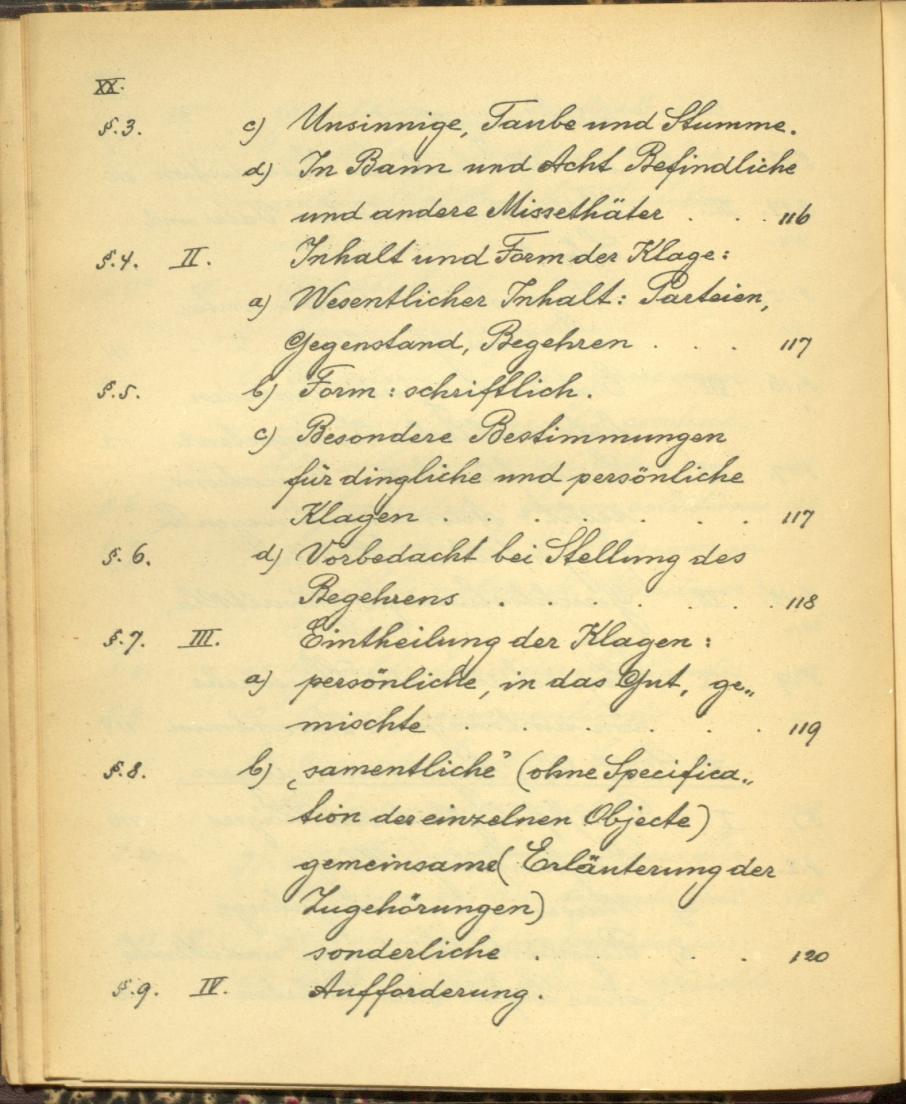 XX.
§.3. c) Unsinnige, Taube und Stumme.
d) In Bann und Acht Befindliche
und andere Missethäter . . . 116
§.4. II. Inhalt und Form der Klage:
a) Wesentlicher Inhalt: Parteien,
Gegenstand, Begehren . . . 117
§.5. b) Form: schriftlich.
c) Besondere Bestimmungen
für dingliche und persönliche
Klagen . . . . . . . 117
§.6. d) Vorbedacht bei Stellung des
Begehrens . . . . . . 118
§.7. III. Eintheilung der Klagen:
a) persönliche, in das Gut, ge„
mischte . . . . . . 119
§.8. b) „samentliche” (ohne Specifica„
tion der einzelnen Objecte)
gemeinsame (Erläuterung der
Zugehörungen)
sonderliche . . . . 120
§.9. IV. Aufforderung.